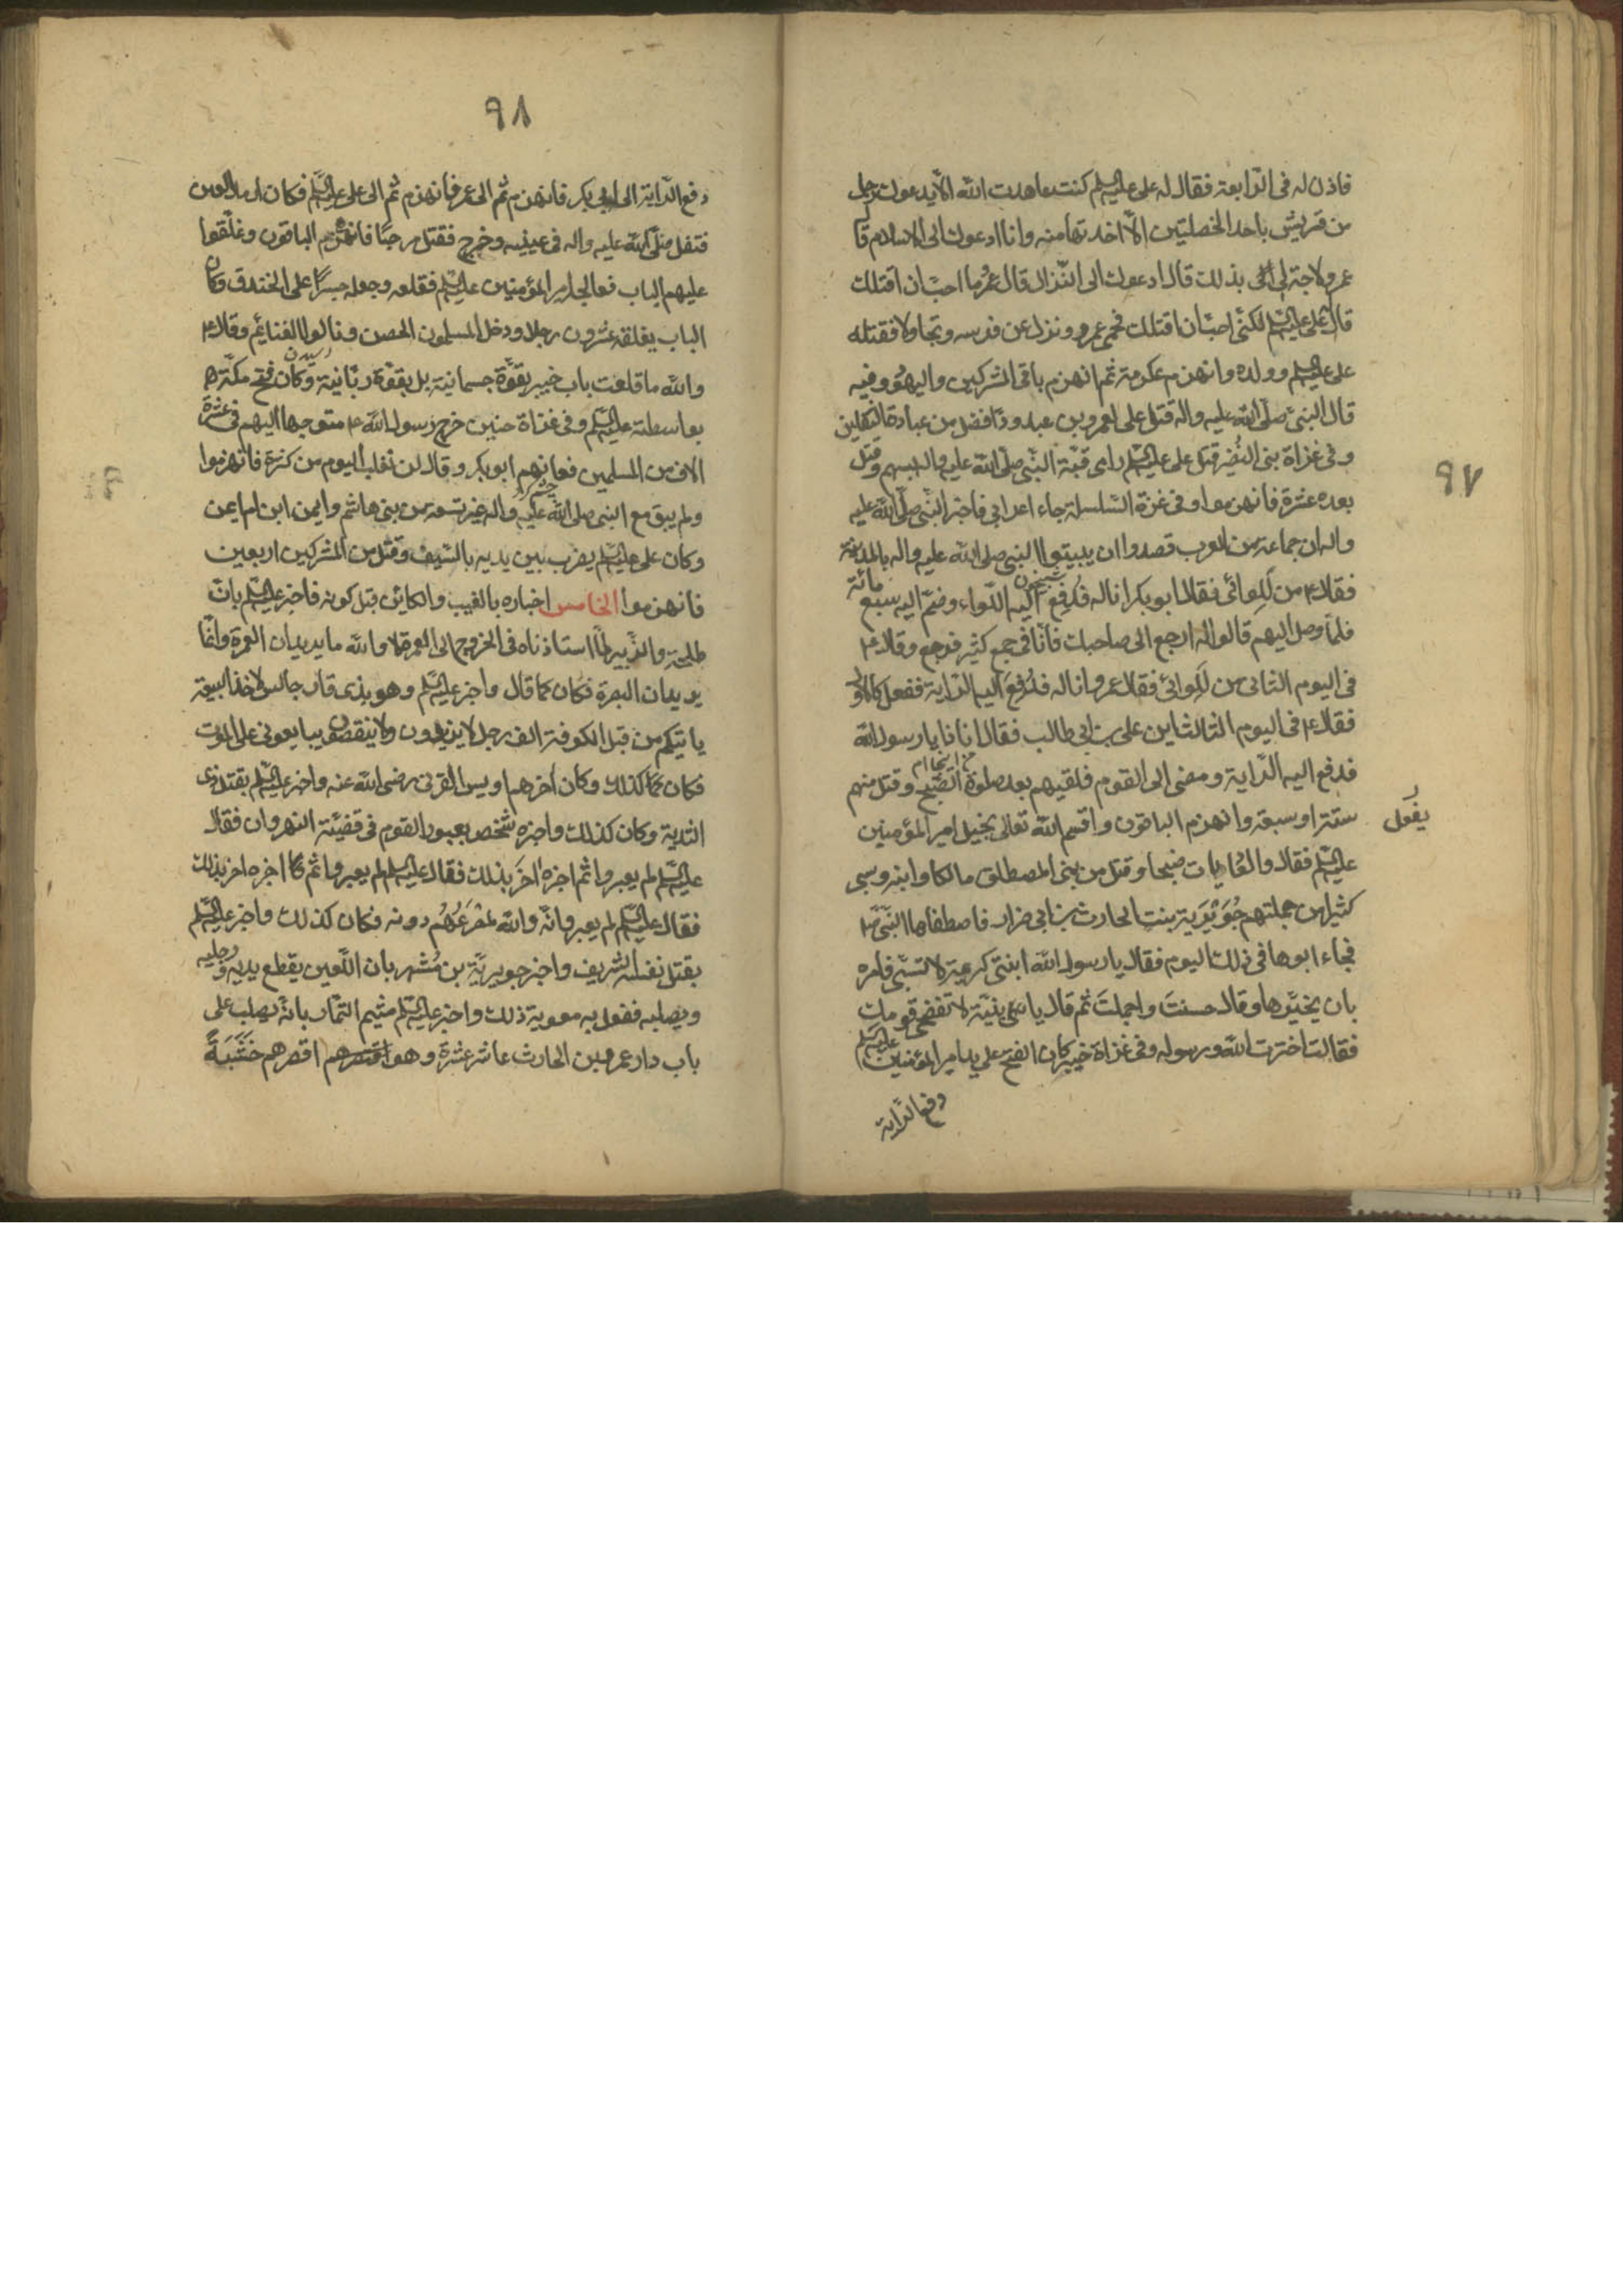 ٩٧
فاذن له فى الرّابعة فقال له على عليه السلم كنت عاهدت الله الّا يدعوك رجل
من قريش باحدا لخصلتين الّا اخدتها منه وانا ادعوك الى الاسلام قال
عمرو لا حاجة لى بذلك قال ادعوك الى النّزال قال عمرو ما احبّ ان اقتلك
قال على عليه السلم لكنّى احبّ ان اقتلك فحمى عمرو ونزل عن فرسه وتجاولا فقتله
على عليه السلم وولده وانهزم عكرمة ثم انهزم باقى المشركين واليهود وفيه
قال النبىّ صلّى الله عليه واله قتل على لعمرو بن عبدودّ افضل من عبادة الثقلين
وفى غزاة بنى النضير قتل على عليه السلم رامى قبّة النّبى صلّى الله عليه واله بسهم وقتل
بعده عشرة فانهزموا وفى غزة السّلسلة جاء اعرابى فاخبر النّبى صلّى الله عليه
واله ان جماعة من العرب قصدوا ان يبيتوا النبى صلى الله عليه واله بالمدينة
فقال ع من للوائى فقال ابوبكر انا له فدُفِع اليه اللّواء وضمّ اليه سبع مائة
فلمّا وصل اليهم قالوا له ارجع الى صاحبك فانّا فى جمع كثير فرجع وقال ع
فى اليوم الثانى من للوائى فقال عمر انا له فدُفِعَ اليه الرّاية ففعل كالاول
فقال ع فى اليوم الثالث اين على بن ابى طالب فقال انا ذا يا رسول الله
فدفع اليه الرّاية ومضى الى القوم فلقيهم بعد صلوة الصّبح وقتل منهم
ستة او سبعة وانهزم الباقون واقسم الله تعالى بخيل امير المؤمنين
عليه السلم فقال والعاديات ضبحا وقتل من بنى المصطلق مالكا وابنه وسبى
كثيرا من جملتهم جُوَيْرَيَة بنت الحارث بن ابى ضرار فاصطفاها النّبىّ ص
فجاء ابوها فى ذلك اليوم فقال يا رسول الله ابنتى كريمة لا تسبى فامره
بان يخيّرها وقال حسنتَ واجملتَ ثم قال يا بنيّة لا تفضحى قومك
فقالت اخترت الله ورسوله وفى غزاة خيبر كان الفتح على يد امير المؤمنين عليه السلم
دفع الرّاية
٩٨
دفع الرّاية الى ابى بكر فانهزم ثم الى عمر فانهزم ثم الى على عليه السلم فكان ارمد العين
فتفل صلّى الله عليه واله فى عينيه وخرج فقتل مرحبًا فانهزم الباقون وغلّقوا
عليهم الباب فعالجه امير المؤمنين عليه السلم فقلعه وجعله جسرًا على الخندق وكان
الباب يغلقه عشرون رجلا ودخل المسلمون الحصن ونالوا الغنايم وقال ع
والله ما قلعت باب خيبر بقوّة جسمانية بل بقوّة ربّانية وكان فتح مكّة
بواسطته عليه السلم وفى غزاة حنين خرج رسول الله ع متوجها اليهم فى عشرة
الاف من المسلمين فعانهم ابوبكر وقال لن نغلب اليوم من كثرة فانهزموا
ولم يبق مع النبى صلى الله عليه واله غير تسعة من بنى هاشم وايمن ابن ام ايمن
وكان على عليه السلم يضرب بين يديه بالسّيف وقتل من المشركين اربعين
فانهزموا الخامس اخباره بالغيب والكائن قبل كونه فاخبر عليه السلم بان
طلحة والزّبير لمّا استاذناه فى الخروج الى العمرة لا والله ما يريدان العمرة وانّما
يريدان البصرة فكان كما قال واخبر عليه السلم وهو بذى قار جالس لاخذ البيعة
ياتيكم من قبل الكوفة الف رجل لا يزيدون ولا ينقصون يبايعونى على الموت
فكان كذلك وكان اخرهم اويس القرنى رضى الله عنه واخبر عليه السلم بقتل ذى
الثدية وكان كذلك واخبره شخص بعبور القوم فى قضيّة النهروان فقال
عليه السلم لم يعبروا ثم اخبره اخرَ بذلك فقال عليه السلم لم يعبروا ثم اخبره اخر بذلك
فقال عليه السلم لم يعبروا وانّه والله لمصرعُهُم دونه فكان كذلك واخبر عليه السلم
بقتل نفسه الشريف واخبر جويريّة بن مُسْهر بان اللّعين يقطع يديه ورجليه
ويصلبه ففعل به معوية ذلك واخبر عليه السلم ميثم التمّار بانّه يصلب على
باب دار عمرو بن الحارث عاشر عشرة وهو اقصرهم خَشَبَةً